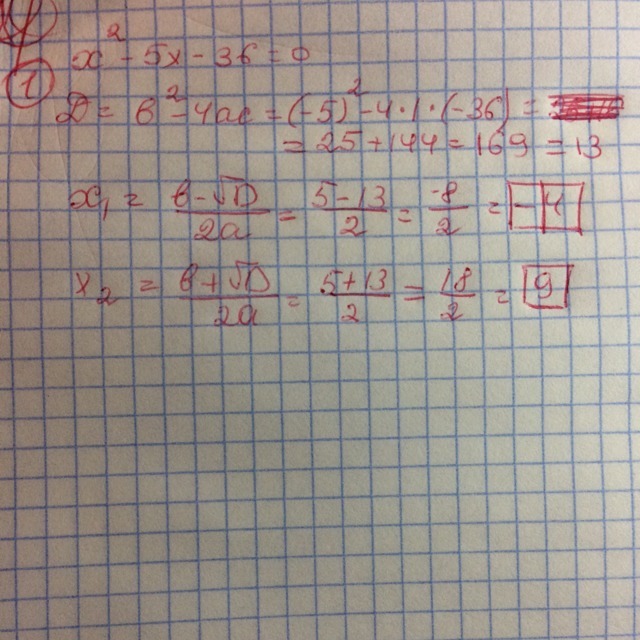 1
x² - 5x - 36 = 0
D = b² - 4ac = (-5)² - 4·1·(-36) =
= 25 + 144 = 169 = 13
x₁ = (b - √D)/(2a) = (5 - 13)/2 = -8/2 = -4
x₂ = (b + √D)/(2a) = (5 + 13)/2 = 18/2 = 9